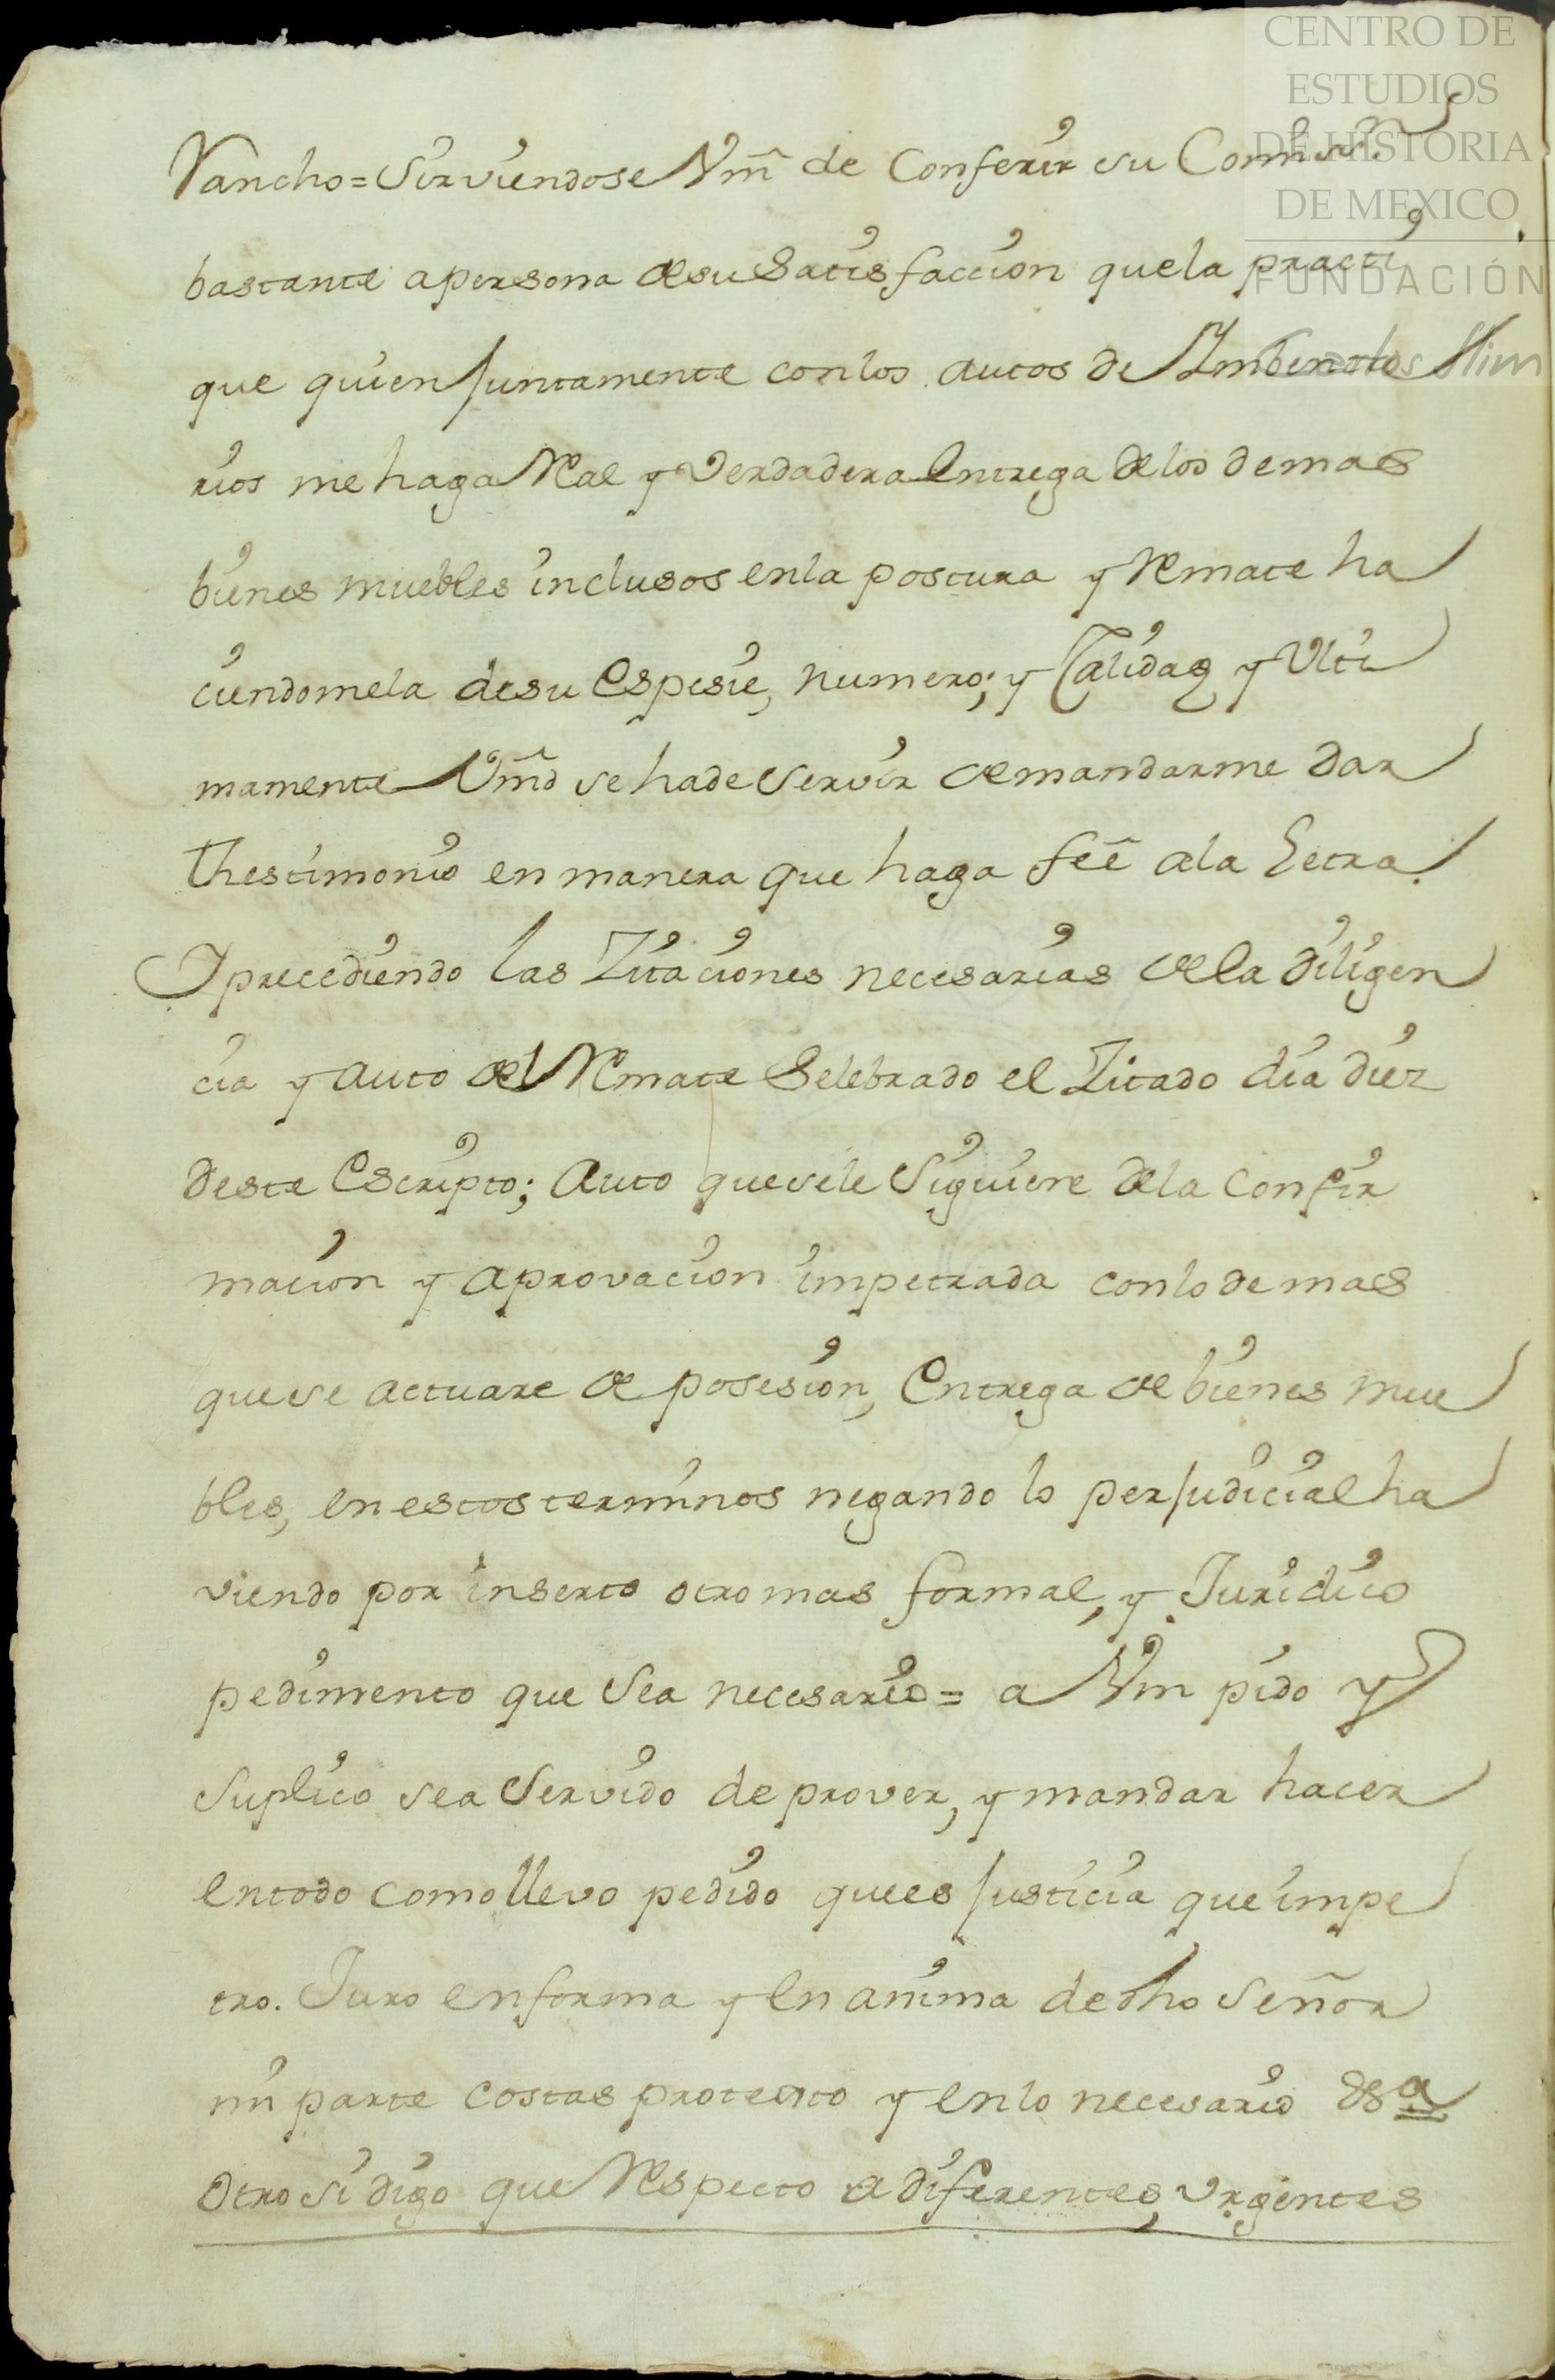 CENTRO DE
ESTUDIOS
DE HISTORIA
DE MEXICO
FUNDACIÓN
Carlos Slim
Rancho = Sirviendose Vm̃ de Conferir su Comis.ⁿ
bastante a persona de su Satisfaccion que la practi
que quien Juntamente con los autos de Imbenta
rios me haga Real y Verdadera Entrega de los demas
bienes muebles inclusos en la postura y Remate ha
ciendomela de su Espesie, numero; y Calidad y Ulti
mamente Vm̃d se ha de Servir de mandarme dar
thestimonio en manera que haga feê a la Letra.
Y precediendo las Zitaciones necesarias de la diligen
cia y auto del Remate Selebrado el Zitado dia diez
deste Escripto; Auto que se le Siguiere de la Confir
macion y aprovacion impetrada con lo demas
que se actuare de posesion, Entrega de bienes mue
bles, en estos terminos negando lo perJudicial ha
viendo por inserto otro mas formal, y Juridico
pedimento que Sea necesario = a Vm pido y
Suplico sea Servido de prover, y mandar hacer
en todo como llevo pedido que es Justicia que impe
tro. Juro en forma y en anima de dho Señor
mi parte costas protexto y en lo necesario &ª
Otro si digo que Respecto a diferentes, urgentes